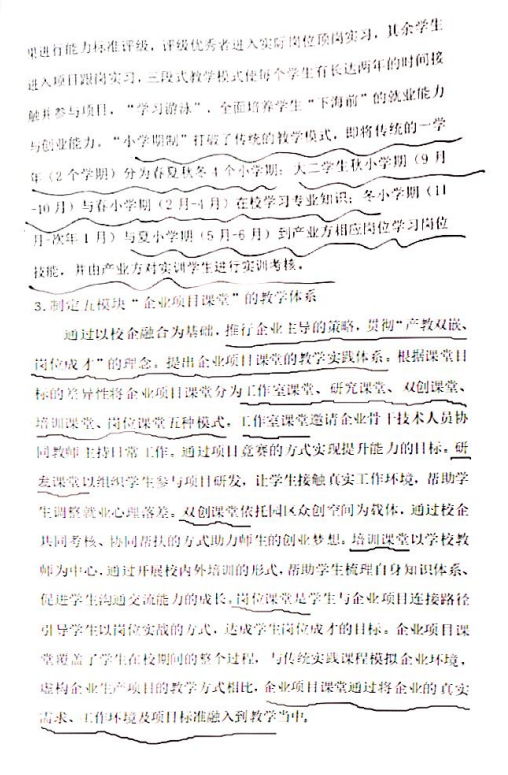 果进行能力标准评级，评级优秀者进入实际岗位顶岗实习，其余学生
进入项目跟岗实习，三段式教学模式使每个学生有长达两年的时间接
触并参与项目，“学习游泳”，全面培养学生“下海前”的就业能力
与创业能力，“小学期制”打破了传统的教学模式，即将传统的一学
年（2个学期）分为春夏秋冬4个小学期：大二学生秋小学期（9月
-10月）与春小学期（2月-4月）在校学习专业知识；冬小学期（11
月-次年1月）与夏小学期（5月-6月）到产业方相应岗位学习岗位
技能，并由产业方对实训学生进行实训考核。
3.制定五模块“企业项目课堂”的教学体系
通过以校企融合为基础，推行企业主导的策略，贯彻“产教双嵌、
岗位成才”的理念，提出企业项目课堂的教学实践体系。根据课堂目
标的差异性将企业项目课堂分为工作室课堂、研究课堂、双创课堂、
培训课堂、岗位课堂五种模式，工作室课堂邀请企业骨干技术人员协
同教师主持日常工作。通过项目竞赛的方式实现提升能力的目标。研
发课堂以组织学生参与项目研发，让学生接触真实工作环境，帮助学
生调整就业心理落差。双创课堂依托园区众创空间为载体，通过校企
共同考核、协同帮扶的方式助力师生的创业梦想。培训课堂以学校教
师为中心，通过开展校内外培训的形式，帮助学生梳理自身知识体系、
促进学生沟通交流能力的成长。岗位课堂是学生与企业项目连接路径
引导学生以岗位实战的方式，达成学生岗位成才的目标。企业项目课
堂覆盖了学生在校期间的整个过程，与传统实践课程模拟企业环境，
虚构企业生产项目的教学方式相比，企业项目课堂通过将企业的真实
需求、工作环境及项目标准融入到教学当中。